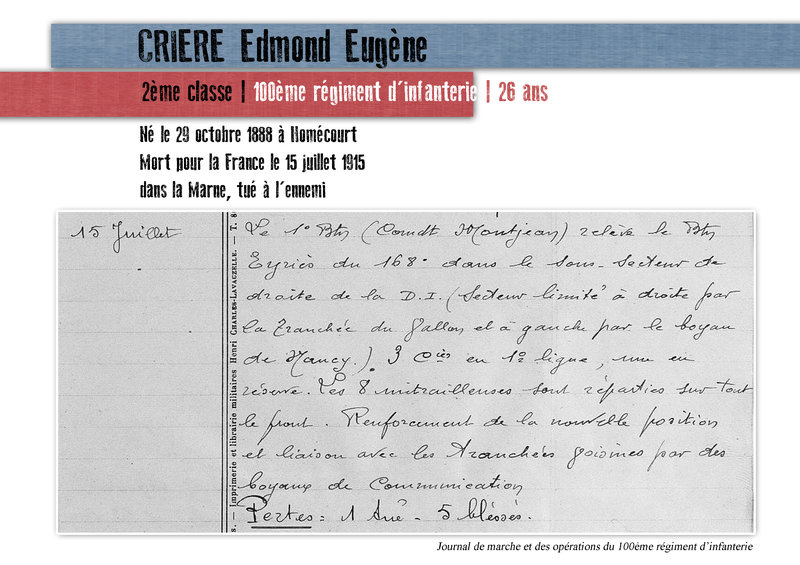 CRIERE Edmond Eugène
2ème classe | 100ème régiment d'infanterie | 26 ans
Né le 29 octobre 1888 à Homécourt
Mort pour la France le 15 juillet 1915
dans la Marne, tué à l'ennemi
15 Juillet
s. — Imprimerie et librairie militaires Henri CHARLES-LAVAUZELLE. — T. 8
Le 1° Btn (Comdt Montjean) relève le Btn
Eyriès du 168° dans le sous-secteur de
droite de la D.I. (Secteur limité à droite par
la Tranchée du Gallon et à gauche par le boyau
de Nancy.) 3 Cies en 1° ligne, une en
réserve. Les 8 mitrailleuses sont réparties sur tout
le front. Renforcement de la nouvelle position
et liaison avec les Tranchées voisines par des
boyaux de Communication
Pertes = 1 tué - 5 blessés.
Journal de marche et des opérations du 100ème régiment d'infanterie